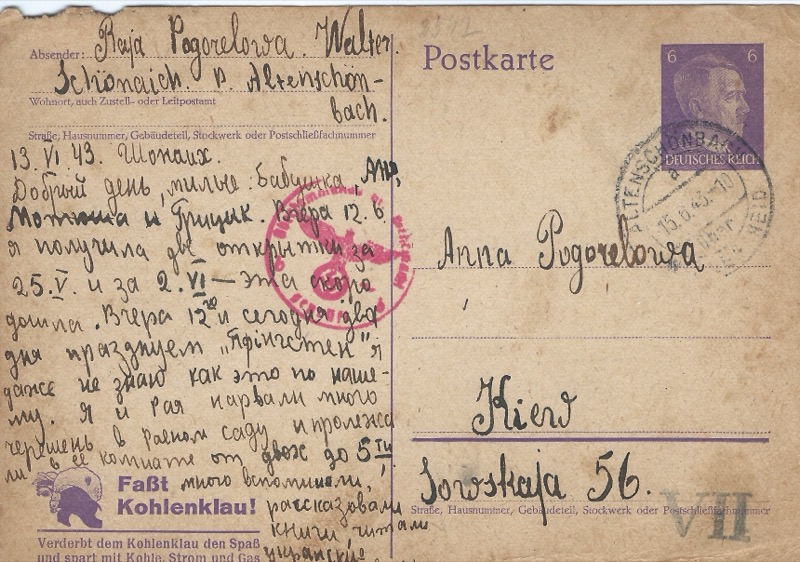 Absender: Raja Pogorelowa. Walter.
Schönaich. P. Altenschön-
bach.
Wohnort, auch Zustell- oder Leitpostamt
Straße, Hausnummer, Gebäudeteil, Stockwerk oder Postschließfachnummer
13. VI 43. Шонаих.
Добрый день, милые Бабушка,
Мотюша и Грицик. Вчера 12.6
я получила две открытки за
25.V. и за 2.VI — эта скоро
дошла. Вчера 12го и сегодня два
дня празднуем "Пфінгстен" я
даже не знаю как это по наше-
му. Я и Рая нарвали много
черешень в раенном саду и пролежа
ли в её комнате от двох до 5ти
много вспомнили,
рассказовали
книги читали
укранскі
Faßt
Kohlenklau!
Verderbt dem Kohlenklau den Spaß
und spart mit Kohle, Strom und Gas
Postkarte
6 6
DEUTSCHES REICH
ALTENSCHÖNBACH
a
15.6.43.-10
Anna Pogorelowa
Kiew
Sowskaja 56.
Straße, Hausnummer, Gebäudeteil, Stockwerk oder Postschließfachnummer
VII